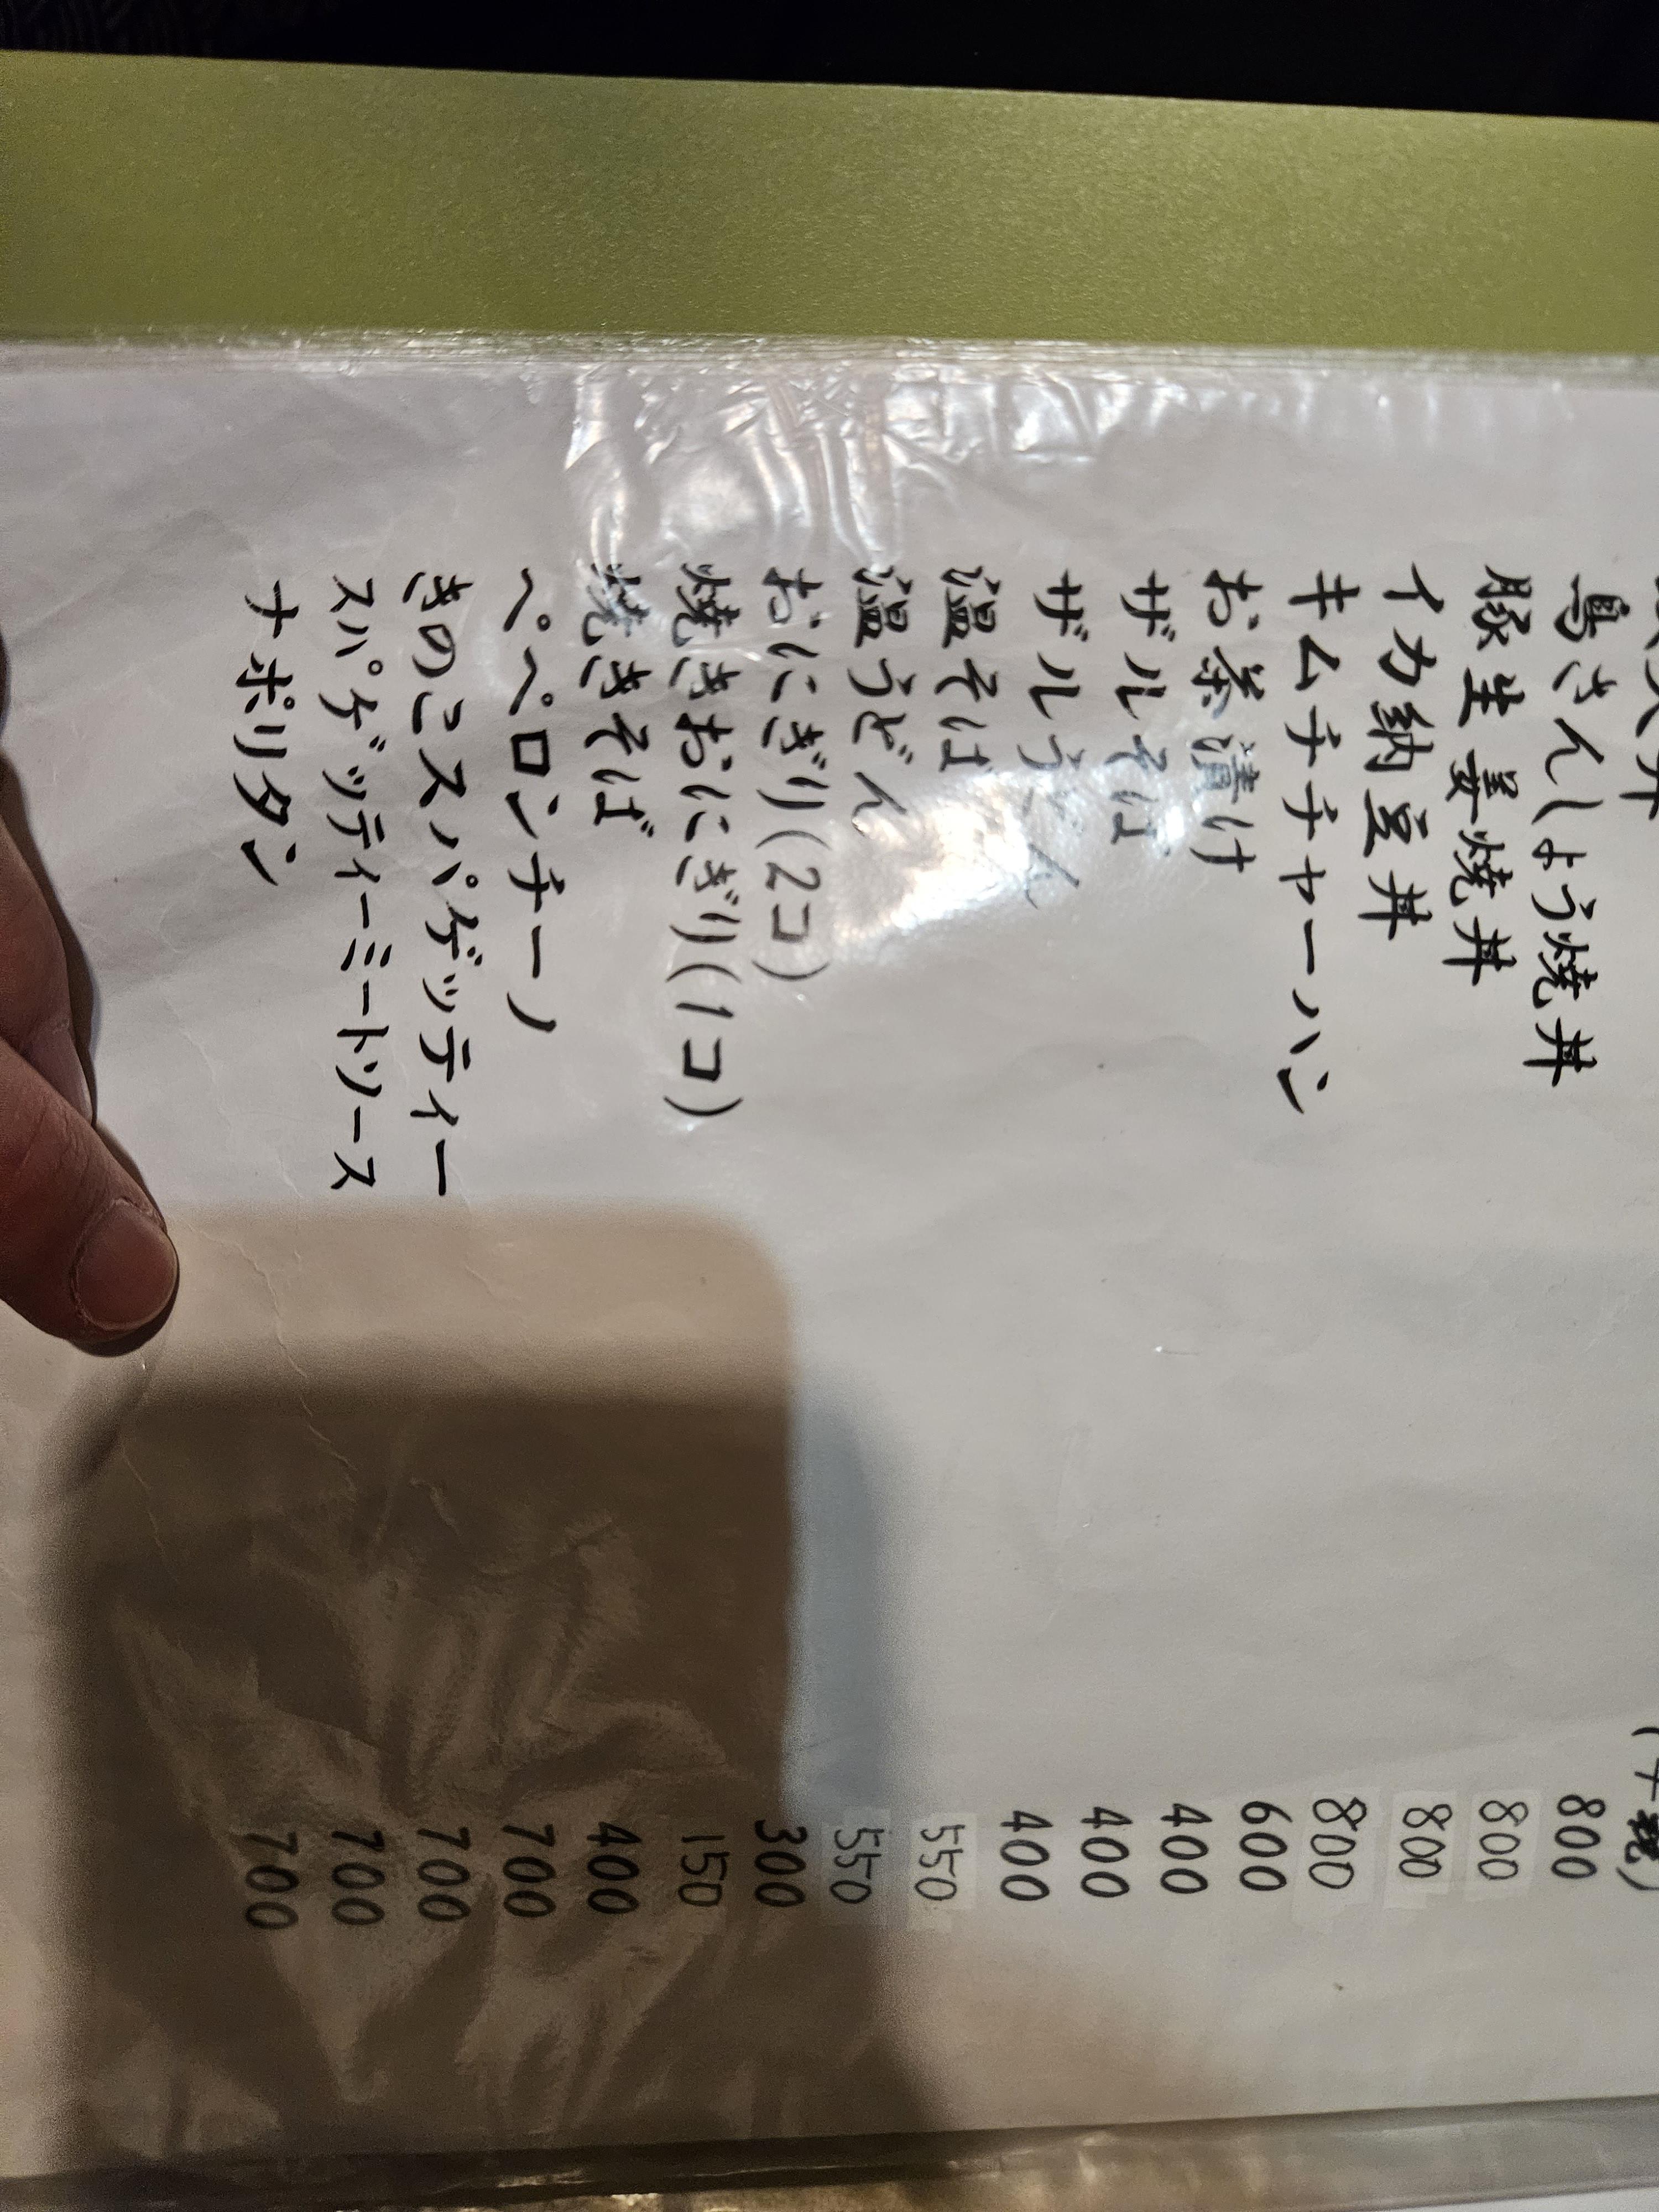 (+税)
丼 800
鳥さんしょう焼丼 800
豚生姜焼丼 800
イカ納豆丼 800
キムチチャーハン 600
お茶漬け 400
ザルそば 400
ザルうどん 400
温そば 550
温うどん 550
おにぎり(2コ) 300
焼きおにぎり(1コ) 150
焼きそば 400
ペペロンチーノ 700
きのこスパゲッティー 700
スパゲッティーミートソース 700
ナポリタン 700